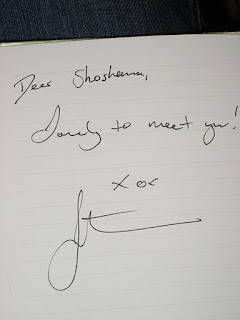 Dear Shoshanna,
Lovely to meet you!
xox